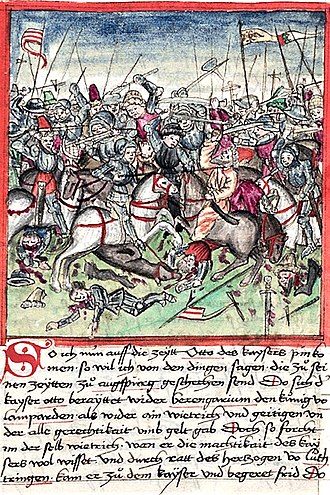 So ich nun auff die zeÿtt Otto des kaÿsers pin ko
men so wil ich von den dingen sagen die zu sei
nen zeÿtten zu augspurg geschechen send Do sich d
kaÿser otto beraÿttet wider berengarium den künig vo
lamparden als wider ain wietrich und geitigen vn
der alle gerechtikait umb gelt gab Doch so forcht
im der selb wietrich wan er die machtikait des kaÿ
sers wol wisset und durch ratt des herczogen vo luth
tringen kam er zu dem kaÿser und begeret frid Do